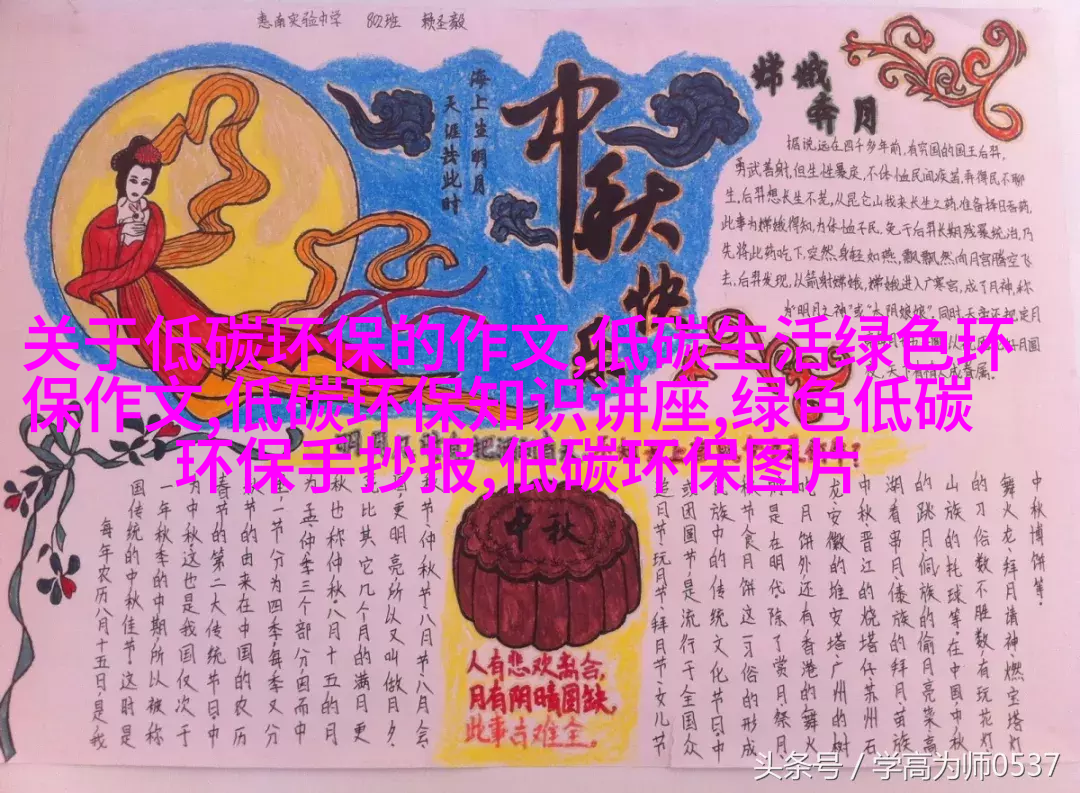 惠南实验中学 802班 赖圣毅
海上生明月
天涯共此时
中秋快
嫦娥
奔月
据说,远在四千多年前,有穷国的国王后羿,
勇武善射,但生性暴戾,不体恤民间疾苦,弄得民不聊
生,后羿想长生不老,从昆仑山找来长生之药,准备择日吞药,
此事为嫦娥得知,为体恤百民,免于后羿长期残暴统治,乃
先将此药吃下,突然身轻如燕,飘飘然向月宫腾空飞
去,后羿发现,以箭射嫦娥,嫦娥进入广寒宫,成了月神,称
关于低碳环保的作文,低碳生活绿色环
保作文,低碳环保知识讲座,绿色低碳
环保手抄报,低碳环保图片
中秋博饼等。
舞火龙、拜月请神、燃宝塔灯
的习俗数不胜数,有玩花灯、
山族的托球等,在中国,中秋
的跳月、侗族的偷月亮菜、高
湖看串月、傣族的拜月、苗族
中秋、晋江的烧塔仔、苏州石
龙、安徽的堆宝塔、广州的树
吃月饼外,还有香港的舞火
是在明代,除了赏月、祭月、
节食月饼这一习俗的形成
民族中的传统文化节日,中
或团圆节,是流行于全国众
追月节、玩月节、拜月节、女儿节
节、仲秋节、八月节、八月会
更明亮,所以又叫做月夕。
比其它几个月的满月更
秋也称仲秋,八月十五的月
孟、仲、季三个部分,因而中
一节分为四季,每季又分
节的由来:在中国的农历
春节的第二大传统节日,中
为中秋,这也是我国仅次于
一年秋季的中期,所以被称
国传统的中秋佳节。这时是
每年农历八月十五日,是我
中秋
人有悲欢离合,
月有阴晴圆缺,
此事古难全。
头条号 / 学高为师0537